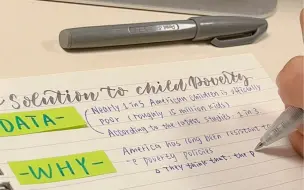 Solution to child Poverty
DATA-
Nearly 1 in 5 American children is officially
poor (roughly 15 million kids)
According to the latest studies,
-WHY-
America has long been resistant to
-e poverty policies
they think that the p